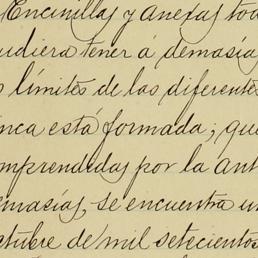 Encinillas y anexas tod
udiera tener á demasía
s límites de las diferente
inca está formada; que
omprendidas por la ant
emasías, se encuentra un
ctubre de mil setecientos